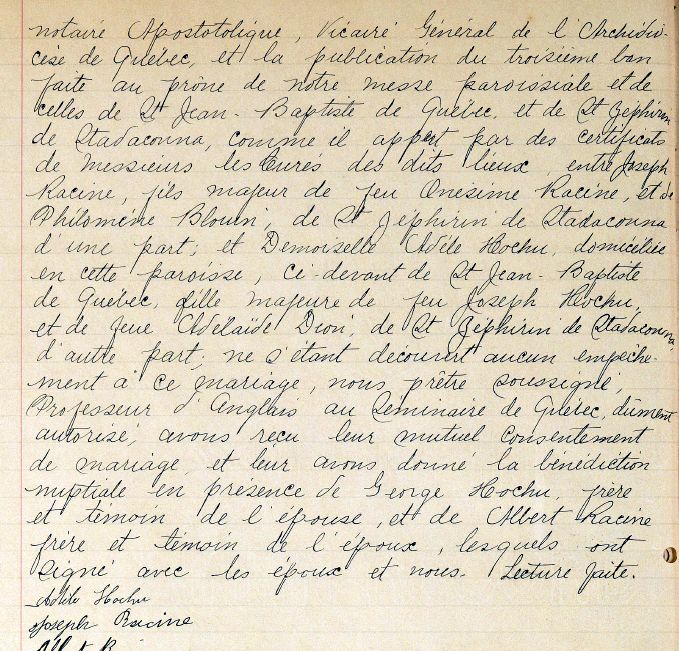 notaire Apostotolique, Vicaire Général de l'Archidio-
cèse de Québec, et la publication du troisième ban
faite au prône de notre messe paroissiale et de
celles de St Jean-Baptiste de Québec, et de St Zéphirin
de Stadaconna, comme il appert par des certificats
de Messieurs les Curés des dits lieux, entre Joseph
Racine, fils majeur de feu Onésime Racine, et de
Philomène Blouin, de St Zéphirin de Stadaconna
d'une part; et Demoiselle Adèle Hochu, domiciliée
en cette paroisse, ci-devant de St Jean-Baptiste
de Québec, fille majeure de feu Joseph Hochu,
et de feue Adélaïde Dion, de St Zéphirin de Stadaconna,
d'autre part; ne s'étant découvert aucun empêche-
ment à ce mariage, nous prêtre soussigné,
Professeur d'Anglais au Séminaire de Québec, dûment
autorisé, avons reçu leur mutuel consentement
de mariage, et leur avons donné la bénédiction
nuptiale en présence de George Hochu, frère
et témoin de l'épouse, et de Albert Racine
frère et témoin de l'époux, lesquels ont
signé avec les époux et nous. Lecture faite.
Adèle Hochu
Joseph Racine